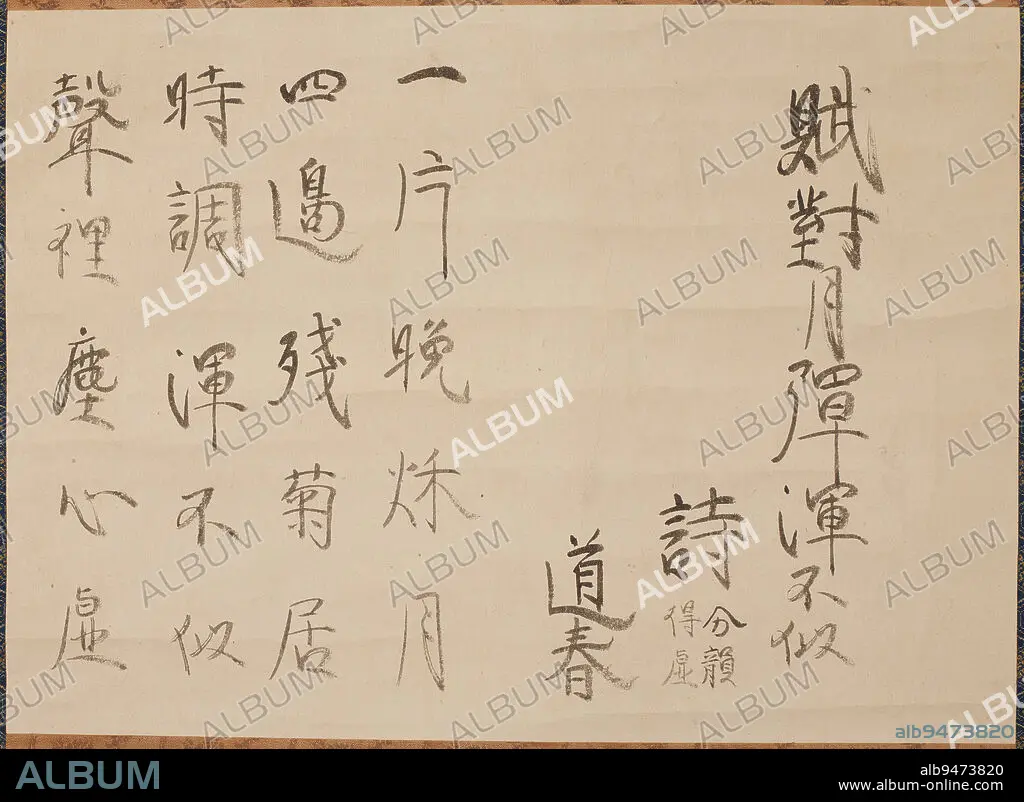 賦對月彈渾不似
詩 分韻得虛
道春
一片晩秌月
四邊殘菊居
時調渾不似
聲裡塵心虛
ALBUM
alb9473820
ALBUM
alb9473820
www.album-online.com